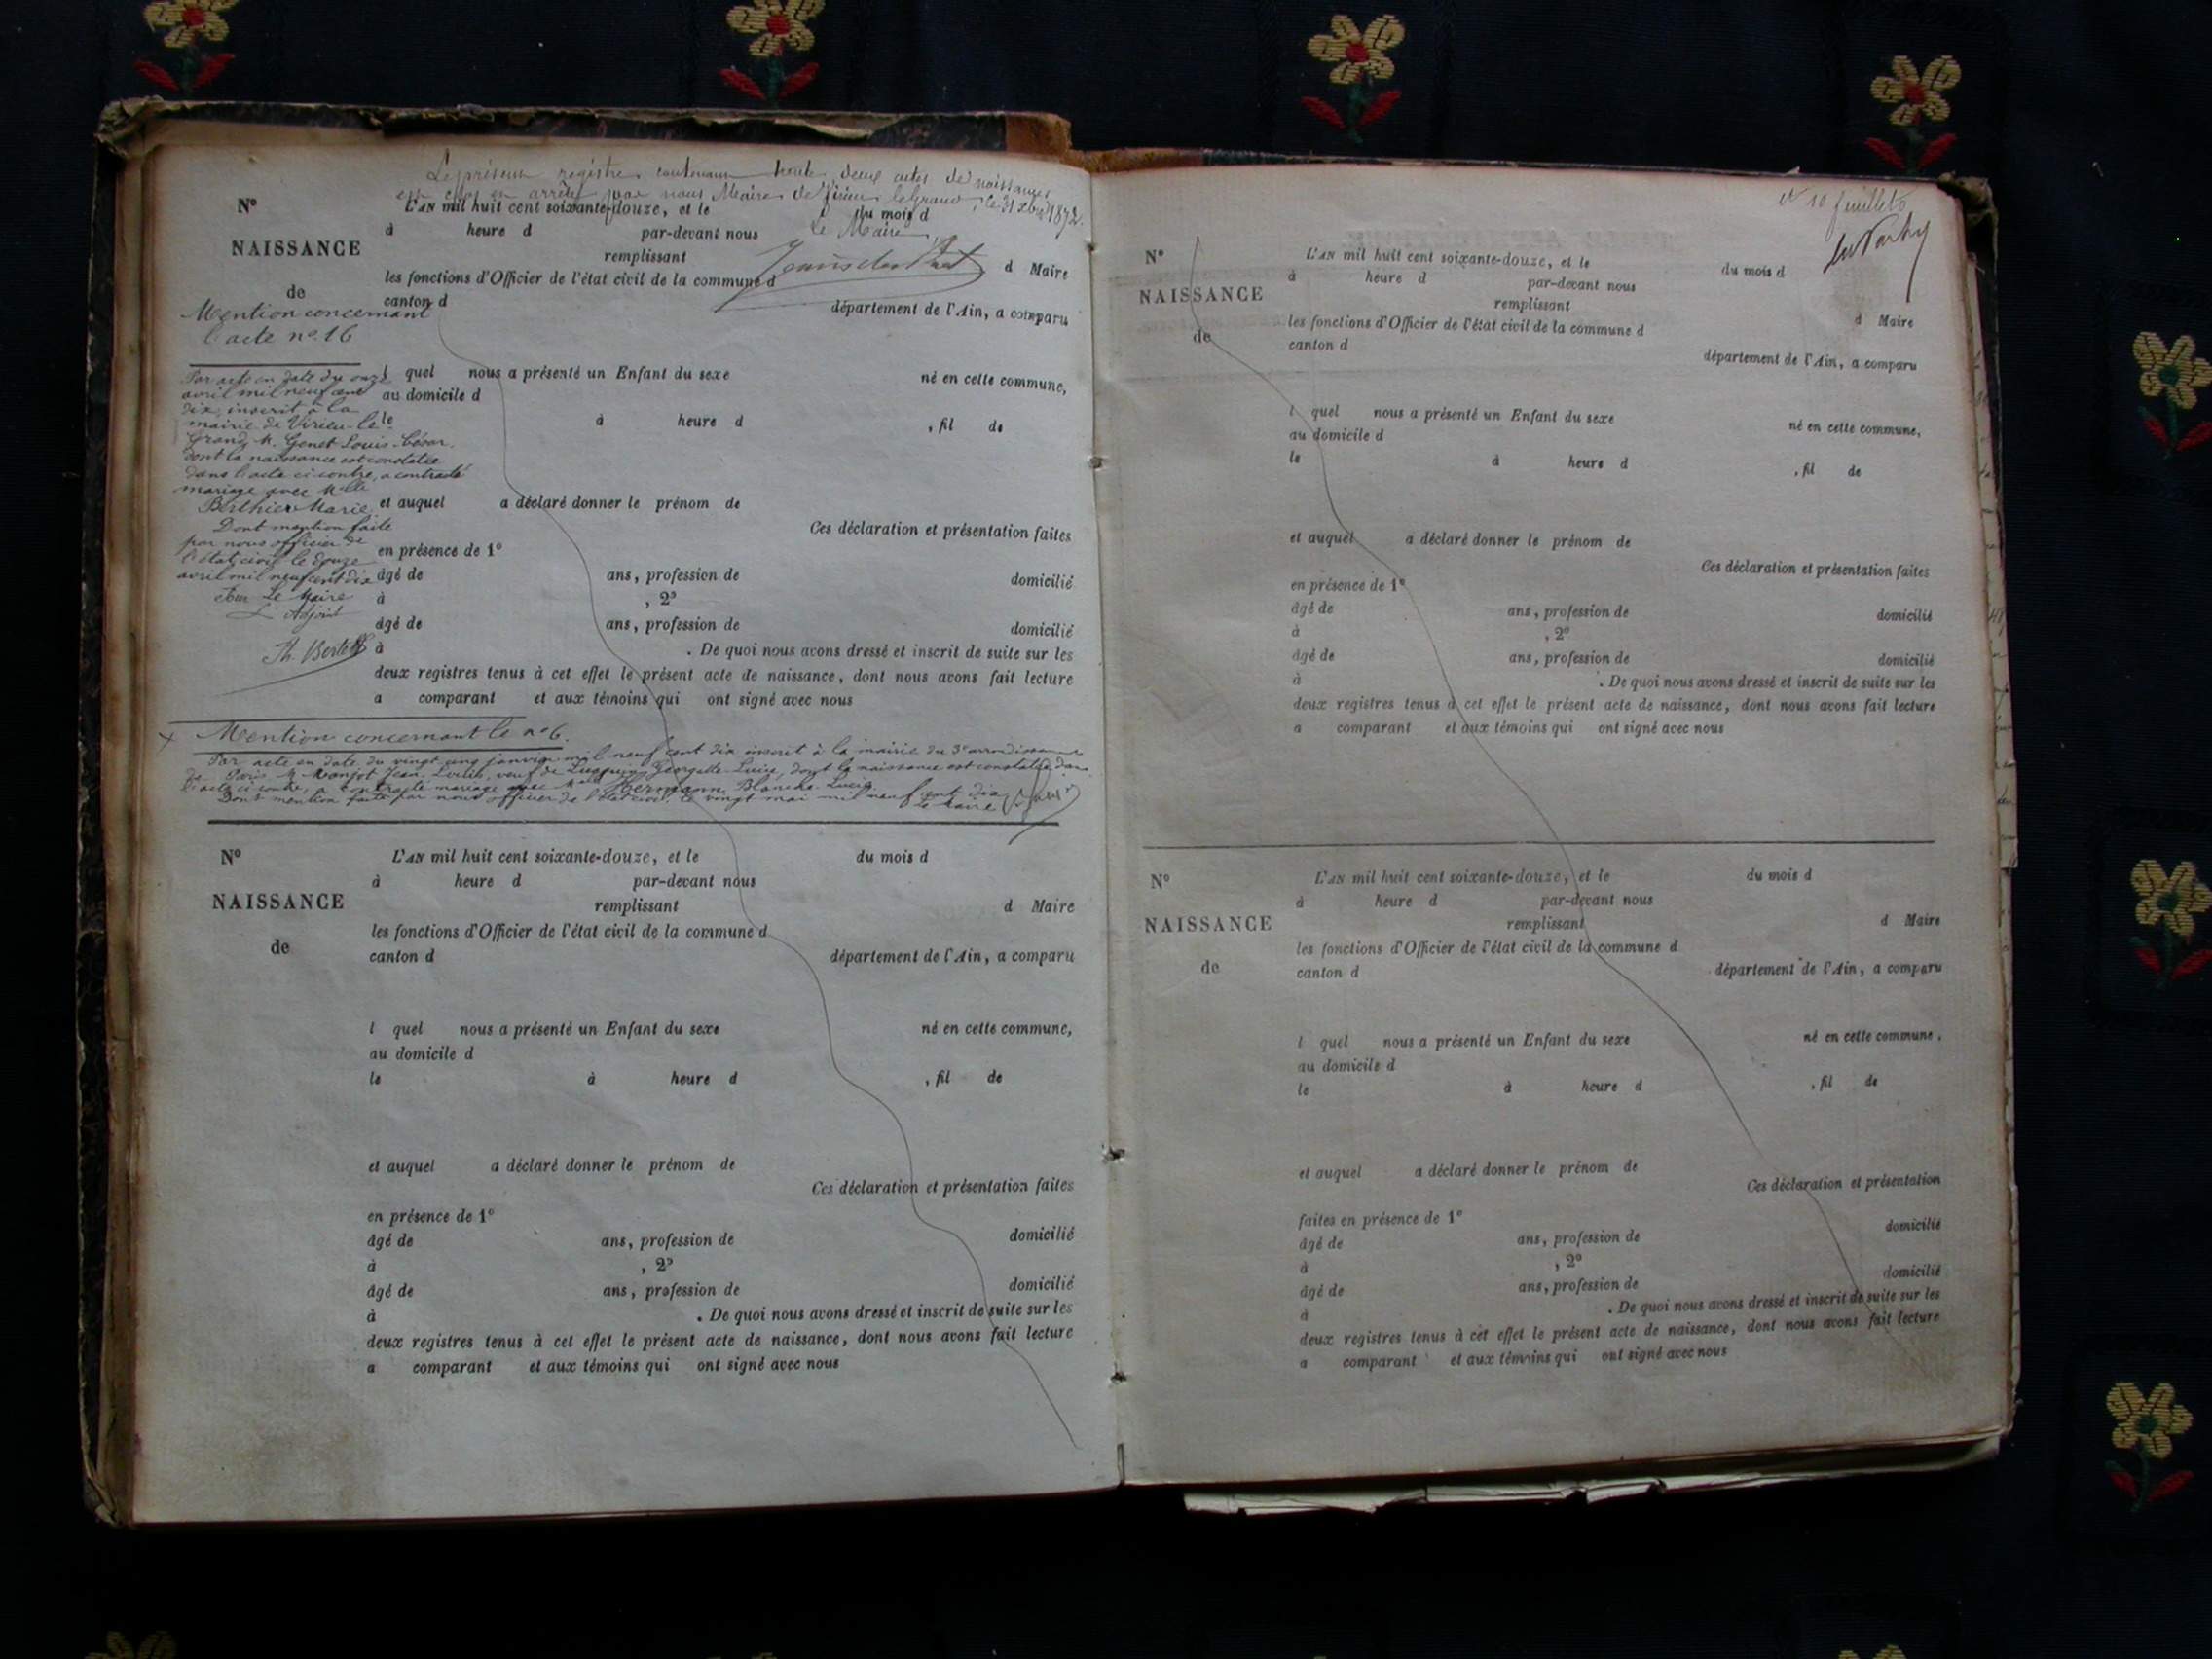 Le présent registre contenant trente deux actes de naissances
est clos et arrêté par nous Maire de Virieu le Grand, le 31 Xbre 1872.
Le Maire
N°
NAISSANCE
de
Mention concernant
l'acte n° 16
L'AN mil huit cent soixante-douze, et le du mois d
à heure d par-devant nous
remplissant d Maire
les fonctions d'Officier de l'état civil de la commune d
canton d département de l'Ain, a comparu
l quel nous a présenté un Enfant du sexe né en cette commune,
au domicile d
le à heure d , fil de
et auquel a déclaré donner le prénom de
Ces déclaration et présentation faites
en présence de 1°
âgé de ans, profession de domicilié
à , 2°
âgé de ans, profession de domicilié
à . De quoi nous avons dressé et inscrit de suite sur les
deux registres tenus à cet effet le présent acte de naissance, dont nous avons fait lecture
a comparant et aux témoins qui ont signé avec nous
Par acte en date du onze
avril mil neuf cent
dix, inscrit à la
mairie de Virieu-le-
Grand, M. Genet Louis-César,
dont la naissance est constatée
dans l'acte ci-contre, a contracté
mariage avec Mlle
Berthier Marie
Dont mention faite
par nous officier de
l'état civil le douze
avril mil neuf cent dix
Pour Le Maire
L'Adjoint
Mention concernant le n° 6.
Par acte en date du vingt cinq janvier mil neuf cent dix inscrit à la mairie du 3e arrondissement
de Paris M. Monjot Jean Louis, veuf de Georgette Lucie, dont la naissance est constatée dans
l'acte ci-contre, a contracté mariage avec Melle Hermann Blanche Lucie.
Dont mention faite par nous officier de l'état civil, le vingt mai mil neuf cent dix
Le Maire
N°
NAISSANCE
de
L'AN mil huit cent soixante-douze, et le du mois d
à heure d par-devant nous
remplissant d Maire
les fonctions d'Officier de l'état civil de la commune d
canton d département de l'Ain, a comparu
l quel nous a présenté un Enfant du sexe né en cette commune,
au domicile d
le à heure d , fil de
et auquel a déclaré donner le prénom de
Ces déclaration et présentation faites
en présence de 1°
âgé de ans, profession de domicilié
à , 2°
âgé de ans, profession de domicilié
à . De quoi nous avons dressé et inscrit de suite sur les
deux registres tenus à cet effet le présent acte de naissance, dont nous avons fait lecture
a comparant et aux témoins qui ont signé avec nous
et 10 feuillets
N°
NAISSANCE
de
L'AN mil huit cent soixante-douze, et le du mois d
à heure d par-devant nous
remplissant d Maire
les fonctions d'Officier de l'état civil de la commune d
canton d département de l'Ain, a comparu
l quel nous a présenté un Enfant du sexe né en cette commune,
au domicile d
le à heure d , fil de
et auquel a déclaré donner le prénom de
Ces déclaration et présentation faites
en présence de 1°
âgé de ans, profession de domicilié
à , 2°
âgé de ans, profession de domicilié
à . De quoi nous avons dressé et inscrit de suite sur les
deux registres tenus à cet effet le présent acte de naissance, dont nous avons fait lecture
a comparant et aux témoins qui ont signé avec nous
N°
NAISSANCE
de
L'AN mil huit cent soixante-douze, et le du mois d
à heure d par-devant nous
remplissant d Maire
les fonctions d'Officier de l'état civil de la commune d
canton d département de l'Ain, a comparu
l quel nous a présenté un Enfant du sexe né en cette commune,
au domicile d
le à heure d , fil de
et auquel a déclaré donner le prénom de
Ces déclaration et présentation
faites en présence de 1° domicilié
âgé de ans, profession de
à , 2° domicilié
âgé de ans, profession de
à . De quoi nous avons dressé et inscrit de suite sur les
deux registres tenus à cet effet le présent acte de naissance, dont nous avons fait lecture
a comparant et aux témoins qui ont signé avec nous